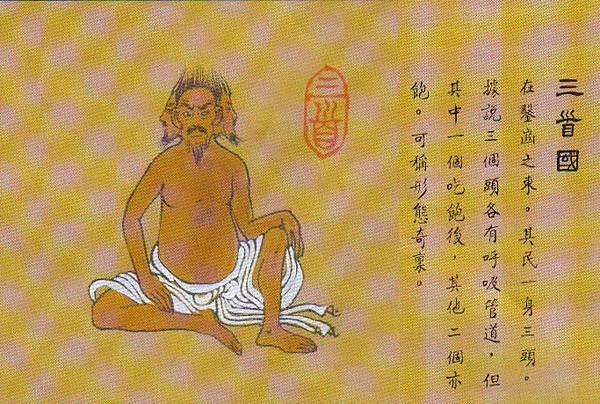 三首國
在鑿齒之東。其民一身三頭。
據說三個頭各有呼吸管道，但
其中一個吃飽後，其他二個亦
飽。可稱形態奇禀。
三首